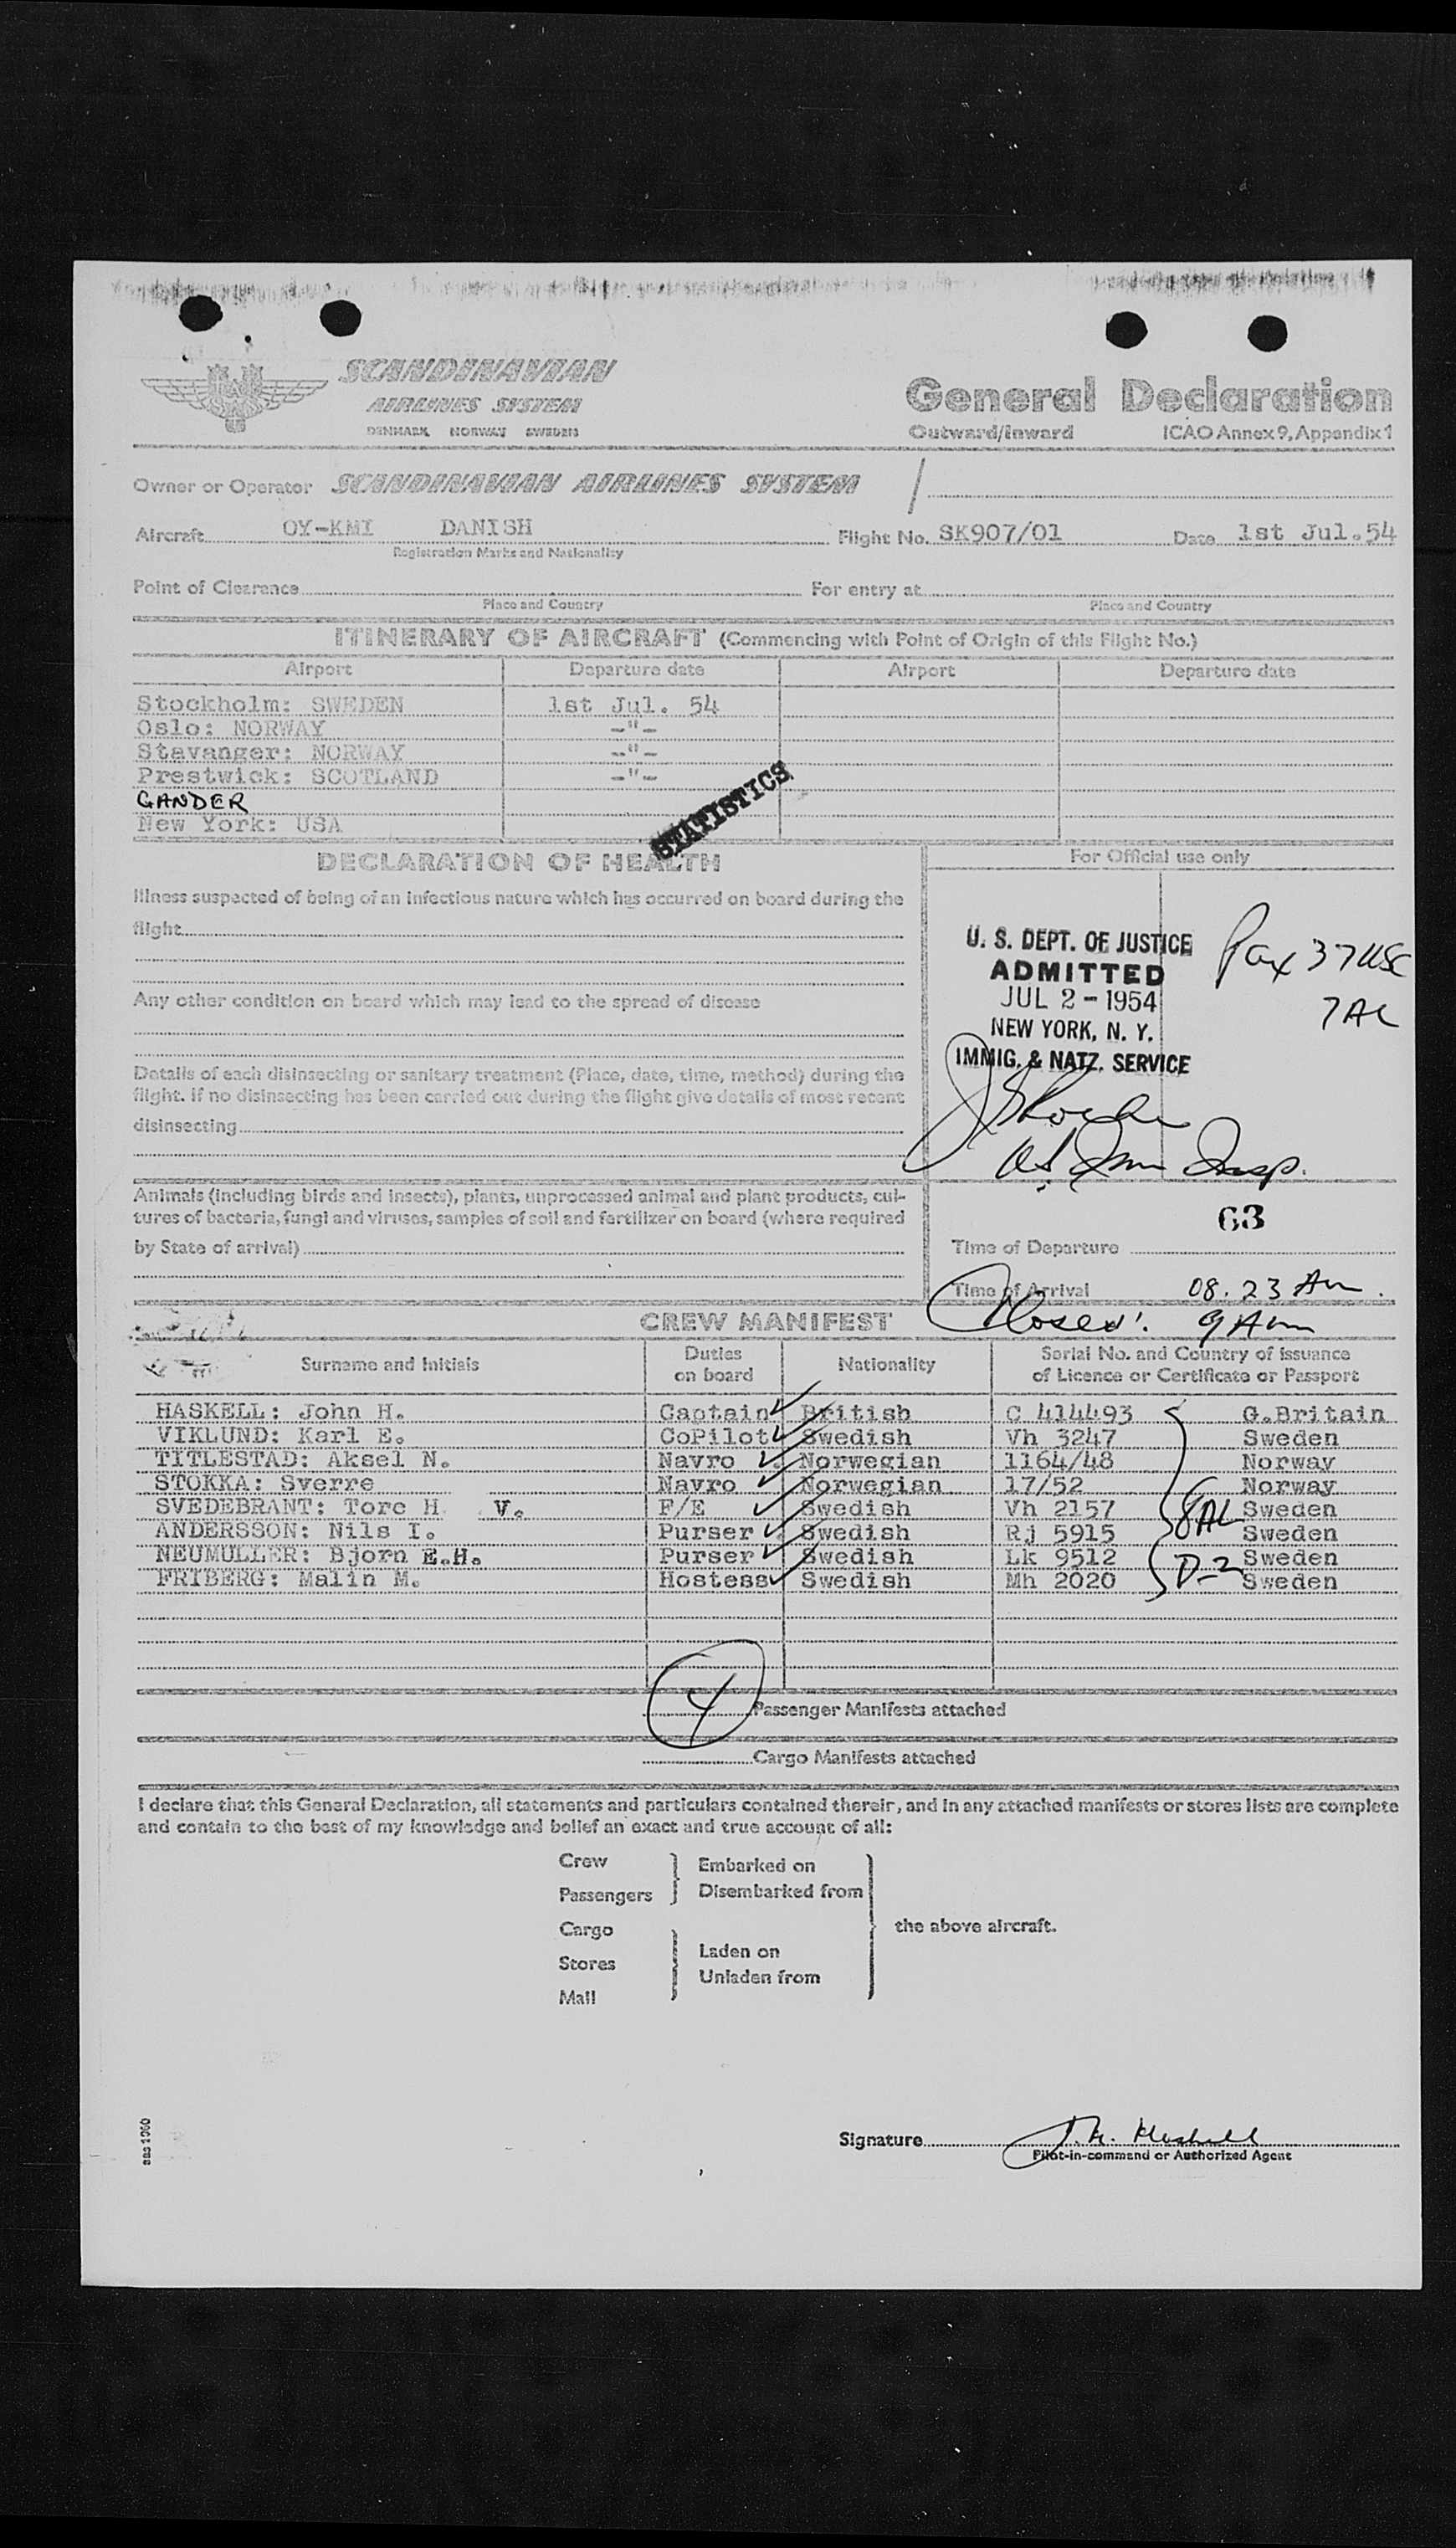 SCANDINAVIAN
AIRLINES SYSTEM
DENMARK NORWAY SWEDEN
General Declaration
Outward/Inward ICAO Annex 9, Appendix 1
Owner or Operator SCANDINAVIAN AIRLINES SYSTEM
Aircraft OY-KMI DANISH Flight No. SK907/01 Date 1st Jul. 54
Registration Marks and Nationality
Point of Clearance For entry at
Place and Country Place and Country
ITINERARY OF AIRCRAFT (Commencing with Point of Origin of this Flight No.)
Airport Departure date Airport Departure date
Stockholm: SWEDEN 1st Jul. 54
Oslo: NORWAY -"-
Stavanger: NORWAY -"-
Prestwick: SCOTLAND -"-
GANDER
New York: USA
STATISTICS
DECLARATION OF HEALTH
Illness suspected of being of an infectious nature which has occurred on board during the
flight
Any other condition on board which may lead to the spread of disease
Details of each disinsecting or sanitary treatment (Place, date, time, method) during the
flight. If no disinsecting has been carried out during the flight give details of most recent
disinsecting
Animals (including birds and insects), plants, unprocessed animal and plant products, cul-
tures of bacteria, fungi and viruses, samples of soil and fertilizer on board (where required
by State of arrival)
For Official use only
U. S. DEPT. OF JUSTICE
ADMITTED
JUL 2 - 1954
NEW YORK, N. Y.
IMMIG. & NATZ. SERVICE
Pax 37 USC
7 AL
US Imm Insp.
63
Time of Departure
Time of Arrival 08.23 Am.
Closed: 9 Am
CREW MANIFEST
Surname and Initials Duties on board Nationality Serial No. and Country of issuance of Licence or Certificate or Passport
HASKELL: John H. Captain British C 414493 G.Britain
VIKLUND: Karl E. CoPilot Swedish Vh 3247 Sweden
TITLESTAD: Aksel N. Navro Norwegian 1164/48 Norway
STOKKA: Sverre Navro Norwegian 17/52 Norway
SVEDEBRANT: Tore H. V. F/E Swedish Vh 2157 Sweden
ANDERSSON: Nils I. Purser Swedish Rj 5915 Sweden
NEUMULLER: Bjorn E.H. Purser Swedish Lk 9512 Sweden
FRIBERG: Malin M. Hostess Swedish Mh 2020 Sweden
8AL
D-2
4 Passenger Manifests attached
Cargo Manifests attached
I declare that this General Declaration, all statements and particulars contained therein, and in any attached manifests or stores lists are complete
and contain to the best of my knowledge and belief an exact and true account of all:
Crew
Passengers
Embarked on
Disembarked from
Cargo
Stores
Mail
Laden on
Unladen from
the above aircraft.
sas 1060
Signature J. H. Haskell
Pilot-in-command or Authorized Agent